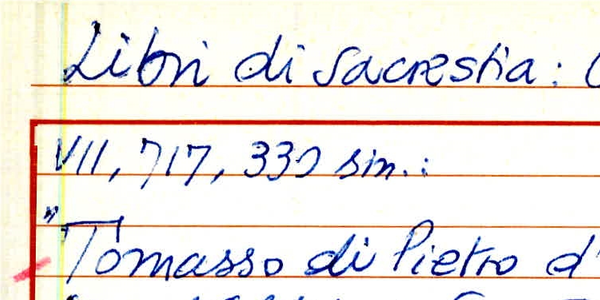 Libri di Sacrestia: 
VII, 717, 330 sin.:
"Tomasso di Pietro d'